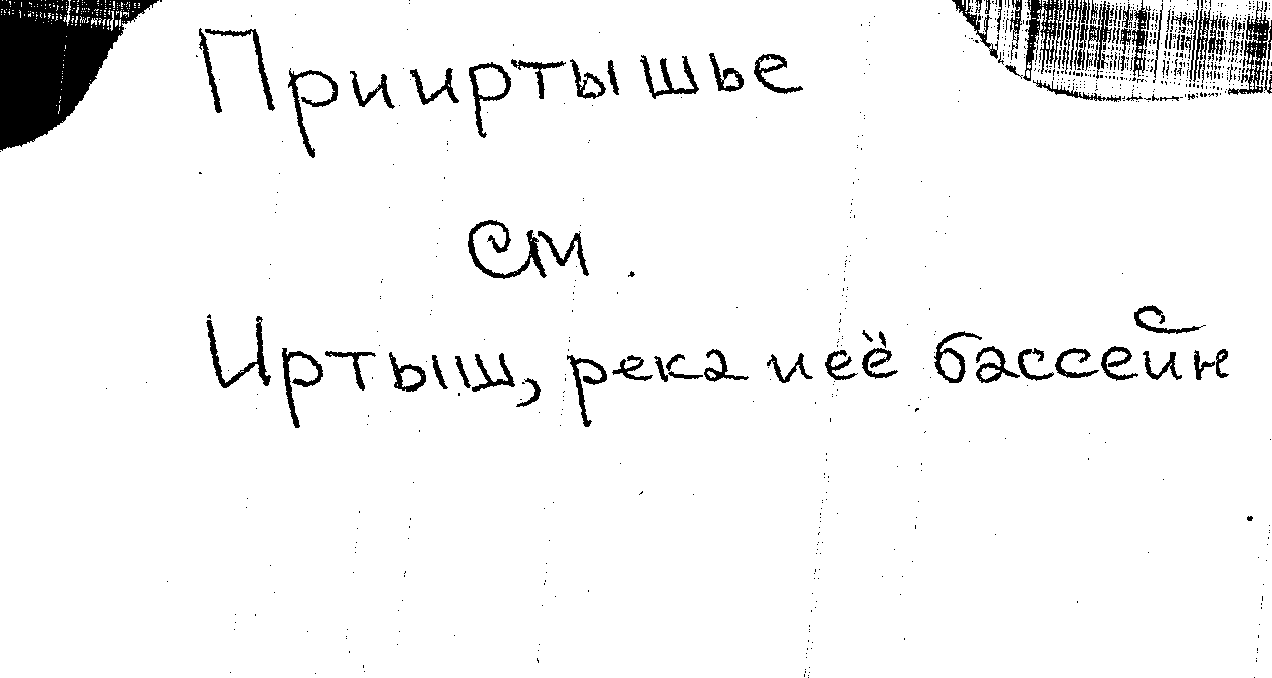 Прииртышье
см.
Иртыш, река и её бассейн